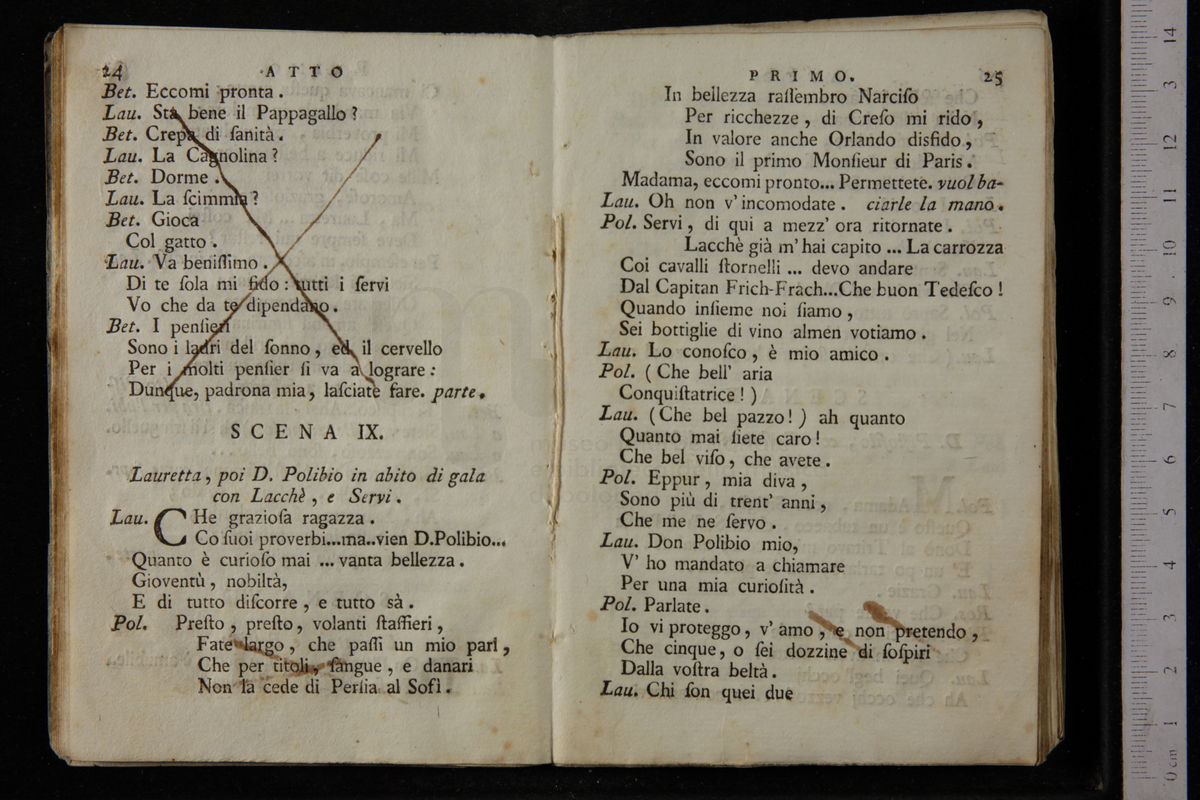 24 ATTO
Bet. Eccomi pronta.
Lau. Stà bene il Pappagallo?
Bet. Crepa di ſanità.
Lau. La Cagnolina?
Bet. Dorme.
Lau. La ſcimmia?
Bet. Gioca
Col gatto.
Lau. Va beniſſimo.
Di te ſola mi fido: tutti i ſervi
Vo che da te dipendano.
Bet. I penſieri
Sono i ladri del ſonno, ed il cervello
Per i molti penſier ſi va a lograre:
Dunque, padrona mia, laſciate fare. parte.
SCENA IX.
Lauretta, poi D. Polibio in abito di gala
con Lacchè, e Servi.
Lau. CHe grazioſa ragazza.
Co ſuoi proverbi...ma..vien D.Polibio...
Quanto è curioſo mai ... vanta bellezza.
Gioventù, nobiltà,
E di tutto diſcorre, e tutto sà.
Pol. Preſto, preſto, volanti ſtaffieri,
Fate largo, che paſſi un mio pari,
Che per titoli, ſangue, e danari
Non la cede di Perſia al Sofì.
PRIMO. 25
In bellezza raſſembro Narciſo
Per ricchezze, di Creſo mi rido,
In valore anche Orlando disfido,
Sono il primo Monſieur di Paris.
Madama, eccomi pronto... Permettete. vuol ba-
Lau. Oh non v'incomodate. ciarle la mano.
Pol. Servi, di qui a mezz' ora ritornate.
Lacchè già m' hai capito ... La carrozza
Coi cavalli ſtornelli ... devo andare
Dal Capitan Frich-Frach...Che buon Tedeſco!
Quando inſieme noi ſiamo,
Sei bottiglie di vino almen votiamo.
Lau. Lo conoſco, è mio amico.
Pol. (Che bell' aria
Conquiſtatrice!)
Lau. (Che bel pazzo!) ah quanto
Quanto mai ſiete caro!
Che bel viſo, che avete.
Pol. Eppur, mia diva,
Sono più di trent' anni,
Che me ne ſervo.
Lau. Don Polibio mio,
V' ho mandato a chiamare
Per una mia curioſità.
Pol. Parlate.
Io vi proteggo, v' amo, e non pretendo,
Che cinque, o ſei dozzine di ſoſpiri
Dalla voſtra beltà.
Lau. Chi ſon quei due
0 cm 1 2 3 4 5 6 7 8 9 10 11 12 13 14